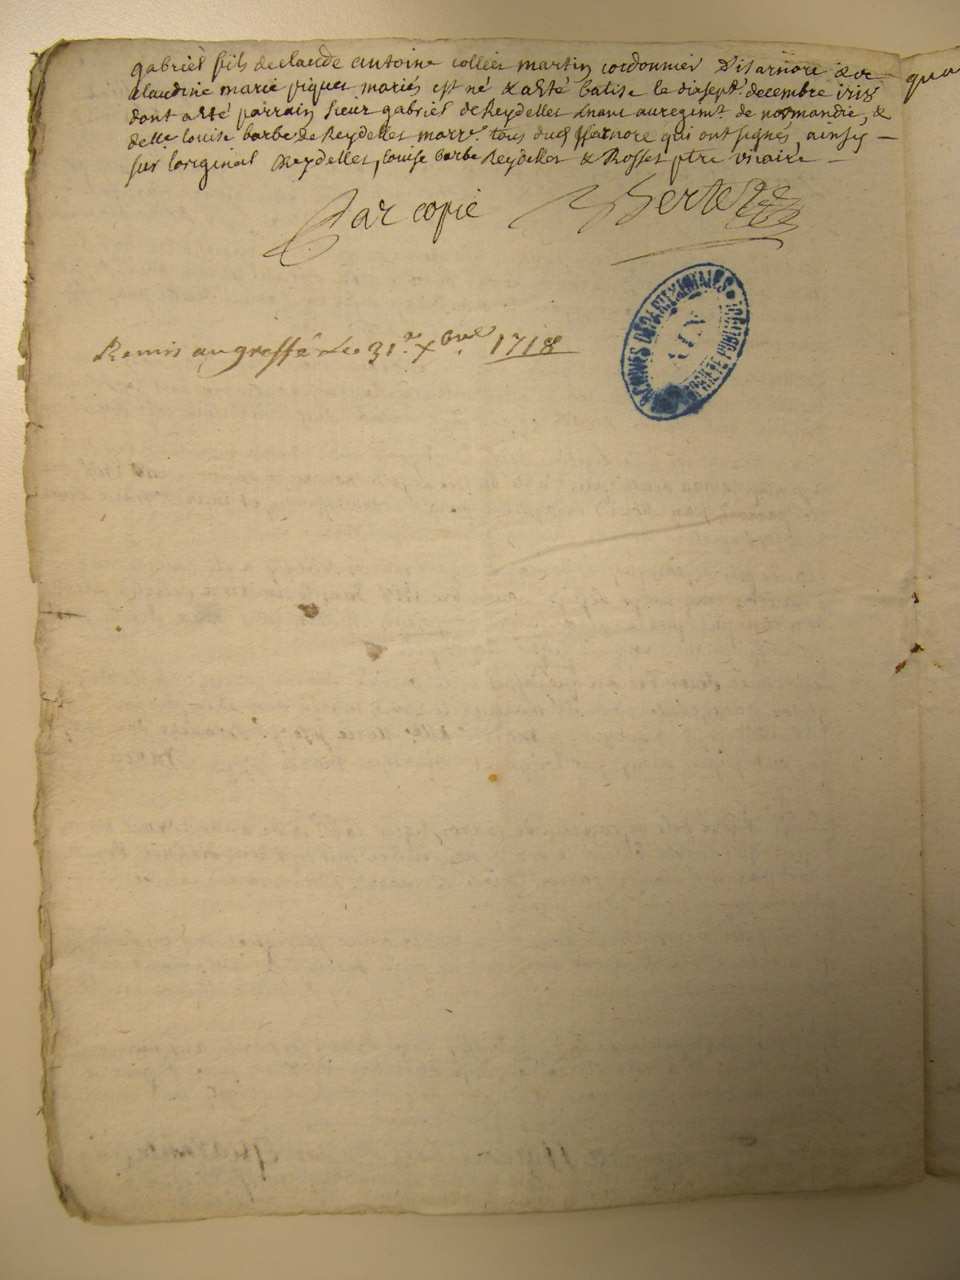 gabriel fils de claude antoine collier martin cordonnier Disarnore & de
claudine marie piquet mariés est né & a esté batise le dixsept decembre
dont a esté parrain sieur gabriel de Reydellet lieut au regimt de normandie, &
delle louise barbe de Reydellet marre tous dud qui ont signés ainsy
sur loriginal Reydellet, louise barbe Reydellet & Rosset ptre vicaire
Par copie
Remis au greffe le 31e Xbre 1718
ARCHIVES DÉPARTEMENTALES
AIN